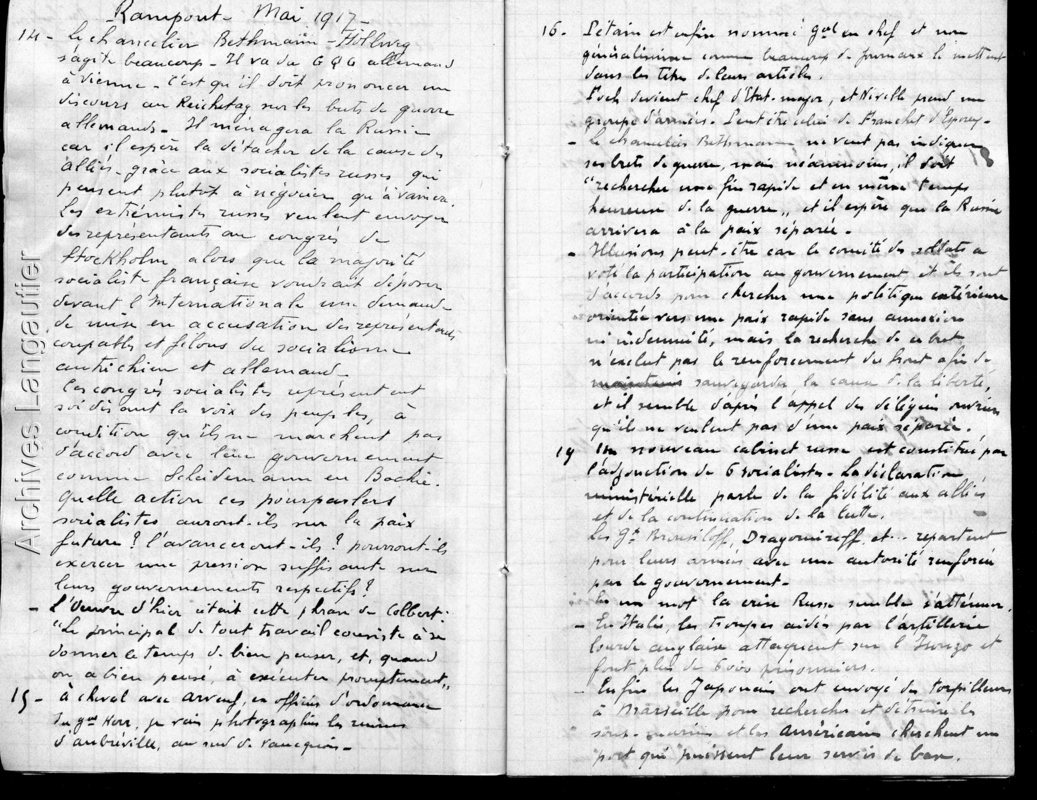 Rampont - Mai 1917 -
14 - Le chancelier Bethmann-Hollweg
s'agite beaucoup - Il va du G Q G allemand
à Vienne - C'est qu'il doit prononcer un
discours au Reichstag sur les buts de guerre
allemands - Il ménagera la Russie
car il espère la détacher de la cause des
alliés, grâce aux socialistes russes qui
pensent plutôt à négocier qu'à vaincre.
Les extrémistes russes veulent envoyer
des représentants au congrès de
Stockholm alors que la majorité
socialiste française voudrait déposer
devant l'Internationale une demande
de mise en accusation des représentants
coupables et félons du socialisme
autrichien et allemand.
Ces congrès socialistes représentent
soi disant la voix des peuples, à
condition qu'ils ne marchent pas
d'accord avec leur gouvernement
comme Scheidemann en Bochie.
quelle action ces pourparlers
socialistes auront-ils sur la paix
future? l'avanceront-ils? pourront-ils
exercer une pression suffisante sur
leurs gouvernements respectifs?
- L'Oeuvre d'hier citait cette phrase de Colbert:
"Le principal de tout travail consiste à se
donner le temps de bien penser, et, quand
on a bien pensé, à exécuter promptement"
15 - à cheval avec Arveuf, en officier d'ordonnance
du gal Kerr, je vais photographier les ruines
d'aubréville, au sud de Vauquois -
16 - Pétain est enfin nommé gal en chef et non
généralissime comme beaucoup de journaux le mettent
dans les titres de leurs articles.
Foch devient chef d'Etat-major, et Nivelle prend un
groupe d'armées - Peut être celui de Franchet d'Esperey -
- Le chancelier Bethmann ne veut pas indiquer
ses buts de guerre, mais néanmoins, il doit
"rechercher une fin rapide et en même temps
heureuse de la guerre" et il espère que la Russie
arrivera à la paix séparée -
- Illusions peut-être car le comité des soldats a
voté la participation au gouvernement et ils sont
d'accords pour chercher une politique extérieure
orientée vers une paix rapide sans annexion
ni indemnité, mais la recherche de ce but
n'exclut pas le renforcement du front afin de
maintenir sauvegarder la cause de la liberté,
et il semble d'après l'appel des délégués ouvriers
qu'ils ne veulent pas d'une paix séparée.
19 Un nouveau cabinet russe est constitué par
l'adjonction de 6 socialistes - La déclaration
ministérielle parle de la fidélité aux alliés
et de la continuation de la lutte.
Les gx Broussiloff, Dragomiroff, et .. repartent
pour leurs armées avec une autorité renforcée
par le gouvernement -
En un mot la crise Russe semble s'atténuer.
- En Italie, les troupes aidées par l'artillerie
lourde anglaise attaquent sur l'Isonzo et
font plus de 6000 prisonniers.
- Enfin les Japonais ont envoyé des torpilleurs
à Marseille pour rechercher et détruire les
sous-marins et les américains cherchent un
port qui puissent leur servir de base.
Archives Langautier